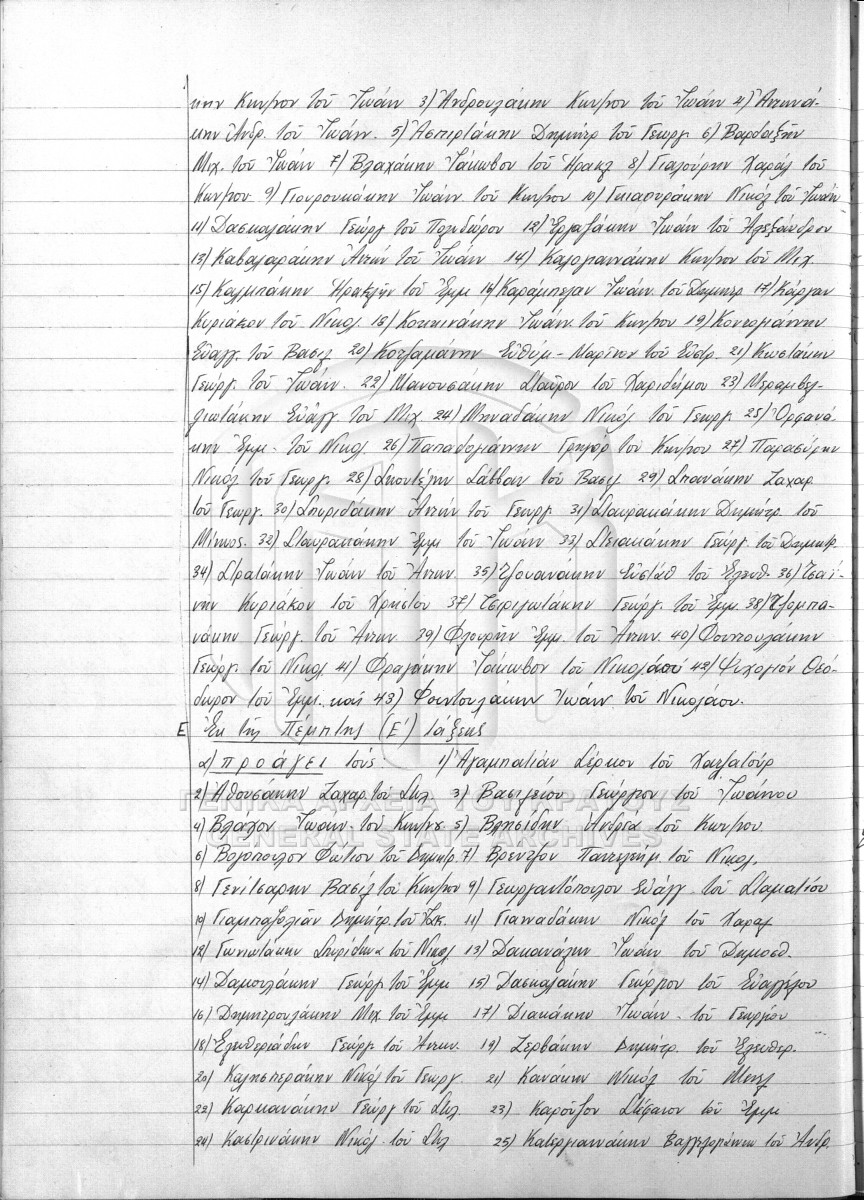 κην Κων/νον τοῦ Ἰωάν 3) Ἀνδρουλάκην Κων/νον τοῦ Ἰωάν 4) Ἀντωνά-
κην Ἀνδρ. τοῦ Ἰωάν. 5) Ἀσπιρτάκην Δημήτρ τοῦ Γεωργ. 6) Βαρδαξῆν
Μιχ. τοῦ Ἰωάν 7) Βλαχάκην Ἰάκωβον τοῦ Ἡρακλ 8) Γιαλούρην Χαράλ τοῦ
Κων/νου 9) Γιουρουκάκην Ἰωάν. τοῦ Κων/νου 10) Γκιαουράκην Νικόλ τοῦ Ἰωάν
11) Δασκαλάκην Γεώργ τοῦ Πολυδώρου 12) Ἐργαζάκην Ἰωάν τοῦ Ἀλεξάνδρου
13) Καβαλαράκην Ἀντών τοῦ Ἰωάν 14) Καλογιαννάκην Κων/νον τοῦ Μιχ
15) Καλμπάκην Ἡρακλῆν τοῦ Ἐμμ 16) Καράμπελαν Ἰωάν. τοῦ Δημητρ 17) Κάργαν
Κυριάκον τοῦ Νικολ 18) Κοκκινάκην Ἰωάν. τοῦ Κων/νου 19) Κοντογιάννην
Εὐάγγ. τοῦ Βασιλ 20) Κοτζαμάνην Εὐθύμ - Μαρῖνον τοῦ Εὐστρ. 21) Κωστάκην
Γεώργ. τοῦ Ἰωάν. 22) Μανουσάκην Σταῦρον τοῦ Χαριδήμου 23) Μεραμβελ-
λιωτάκην Εὐάγγ τοῦ Μιχ 24) Μηναδάκην Νικόλ τοῦ Γεωργ. 25) Ὀρφανά-
κην Ἐμμ. τοῦ Νικολ. 26) Παπαδογιάννην Γρηγόρ τοῦ Κων/νου 27) Παρασύρην
Νικόλ τοῦ Γεωργ. 28) Σκουτέλην Σάββαν τοῦ Βασιλ. 29) Σπανάκην Ζαχαρ
τοῦ Γεωργ. 30) Σπυριδάκην Ἀντών τοῦ Γεωργ 31) Σταυρακάκην Δημήτρ. τοῦ
Μίνωος. 32) Σταυρακάκην Ἐμμ τοῦ Ἰωάν 33) Στειακάκην Γεώργ. τοῦ Δημητρ.
34) Στρατάκην Ἰωάν τοῦ Ἀντων. 35) Τζουανάκην Εὐστάθ τοῦ Ἐλευθ. 36) Τσαΐ-
νην Κυριάκον τοῦ Χρήστου 37) Τσιριγωτάκην Γεώργ. τοῦ Ἐμμ. 38) Τζομπα-
νάκην Γεώργ. τοῦ Ἀντων. 39) Φλουρῆν Ἐμμ. τοῦ Ἀντων. 40) Φουντουλάκην
Γεώργ. τοῦ Νικολ. 41) Φραγάκην Ἰάκωβον τοῦ Νικολάου 42) Ψυχογιόν Θεό-
δωρον τοῦ Ἐμμ. καί 43) Φουντουλάκην Ἰωάν. τοῦ Νικολάου.
Ε Ἐκ τῆς Πέμπτης (Ε') τάξεως
α) προάγει τούς: 1) Ἀγαμπατιάν Σέρκον τοῦ Χατζατούρ
2) Ἀθουσάκην Ζαχαρ. τοῦ Στυλ 3) Βασιλείου Γεώργιον τοῦ Ἰωάννου
4) Βλάχον Ἰωάν. τοῦ Κων/νου 5) Βλησίδην Ἀνδρέα τοῦ Κων/νου
6) Βολόπουλον Φώτιον τοῦ Δημητρ. 7) Βρέντζον Παντελεήμ. τοῦ Νικολ.
8) Γενίτσαρην Βασίλ τοῦ Κων/νου 9) Γεωργαντόπουλον Εὐάγγ. τοῦ Σταματίου
10) Γιαμπαζολιάν Δημήτρ. τοῦ 11) Γιανναδάκην Νικόλ τοῦ Χαραλ
12) Γωνιωτάκην Σπυρίδωνα τοῦ Νικολ 13) Δακανάλην Ἰωάν τοῦ Δημοσθ.
14) Δαμουλάκην Γεώργ. τοῦ Ἐμμ 15) Δασκαλάκην Γεώργιον τοῦ Εὐαγγέλου
16) Δημητρουλάκην Μιχ τοῦ Ἐμμ 17) Διακάκην Ἰωάν. τοῦ Γεωργίου
18) Ἐλευθεριάδην Γεώργ. τοῦ Ἀντων. 19) Ζερβάκην Δημήτρ. τοῦ Ἐλευθερ.
20) Καλησπεράκην Νικόλ τοῦ Γεωργ. 21) Κανάκην Νικόλ τοῦ Μιχλ
22) Καρκανάκην Γεώργ τοῦ Στυλ 23) Καρούζον Στέφανον τοῦ Ἐμμ
24) Καστρινάκην Νικόλ. τοῦ Στυλ 25) Κατεργιαννάκην τοῦ Ἀνδρ.
ΓΕΝΙΚΑ ΑΡΧΕΙΑ ΤΟΥ ΚΡΑΤΟΥΣ
GENERAL STATE ARCHIVES